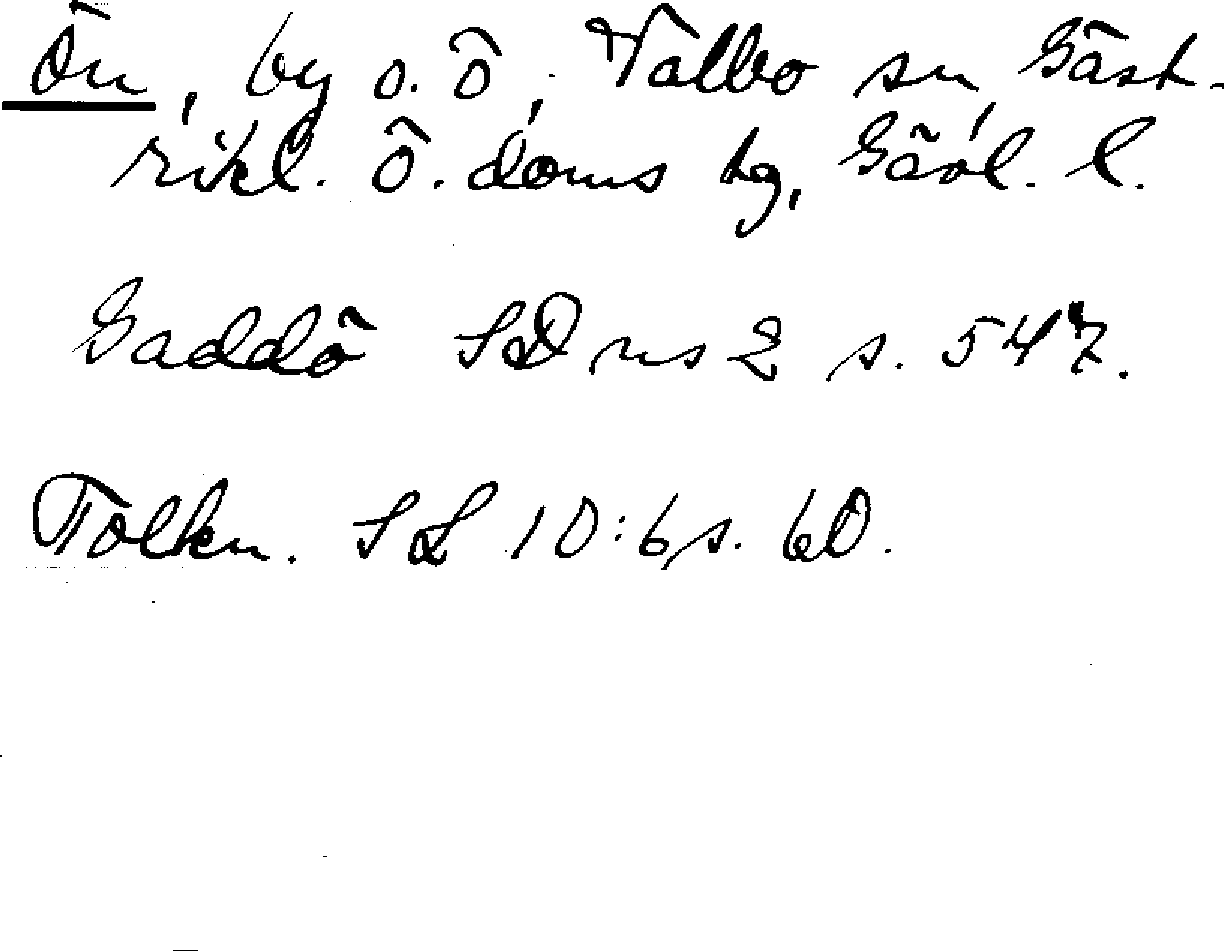 Ön, by o. ö, Valbo sn Gäst-
rikl. Ö. doms hg, Gävl. l.
Gaddö SD ns 2 s. 547.
Tolkn. SL 10:6 s. 60.